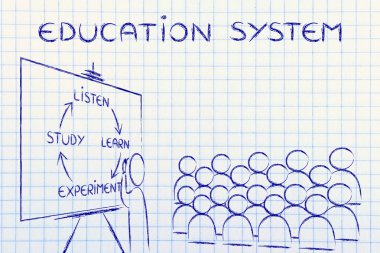 EDUCATION SYSTEM
LISTEN
STUDY LEARN
EXPERIMENT